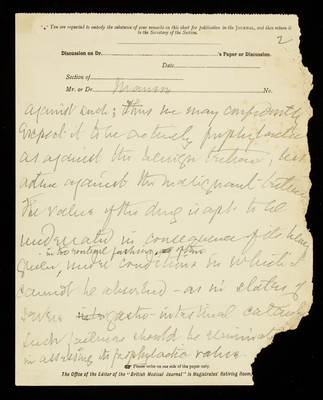 *** You are requested to embody the substance of your remarks on this sheet for publication in the JOURNAL, and then return it
to the Secretary of the Section.
2
Discussion on Dr. 's Paper or Discussion.
Date
Section of
Mr. or Dr. Manson No.
against such; thus we may confidently
expect it to be actively prophylactic
as against the benign tertian, less
active against the malignant tertian
The value of the drug is apt to be
underrated in consequence of its being
in the routine fashion, as often
given, under conditions in which it
cannot be absorbed - as in states of
severe gastro-intestinal catarrh
such failures should be eliminated
in assessing its prophylactic value.
Please write on one side of the paper only.
The Office of the Editor of the "British Medical Journal" is Magistrates' Retiring Room,